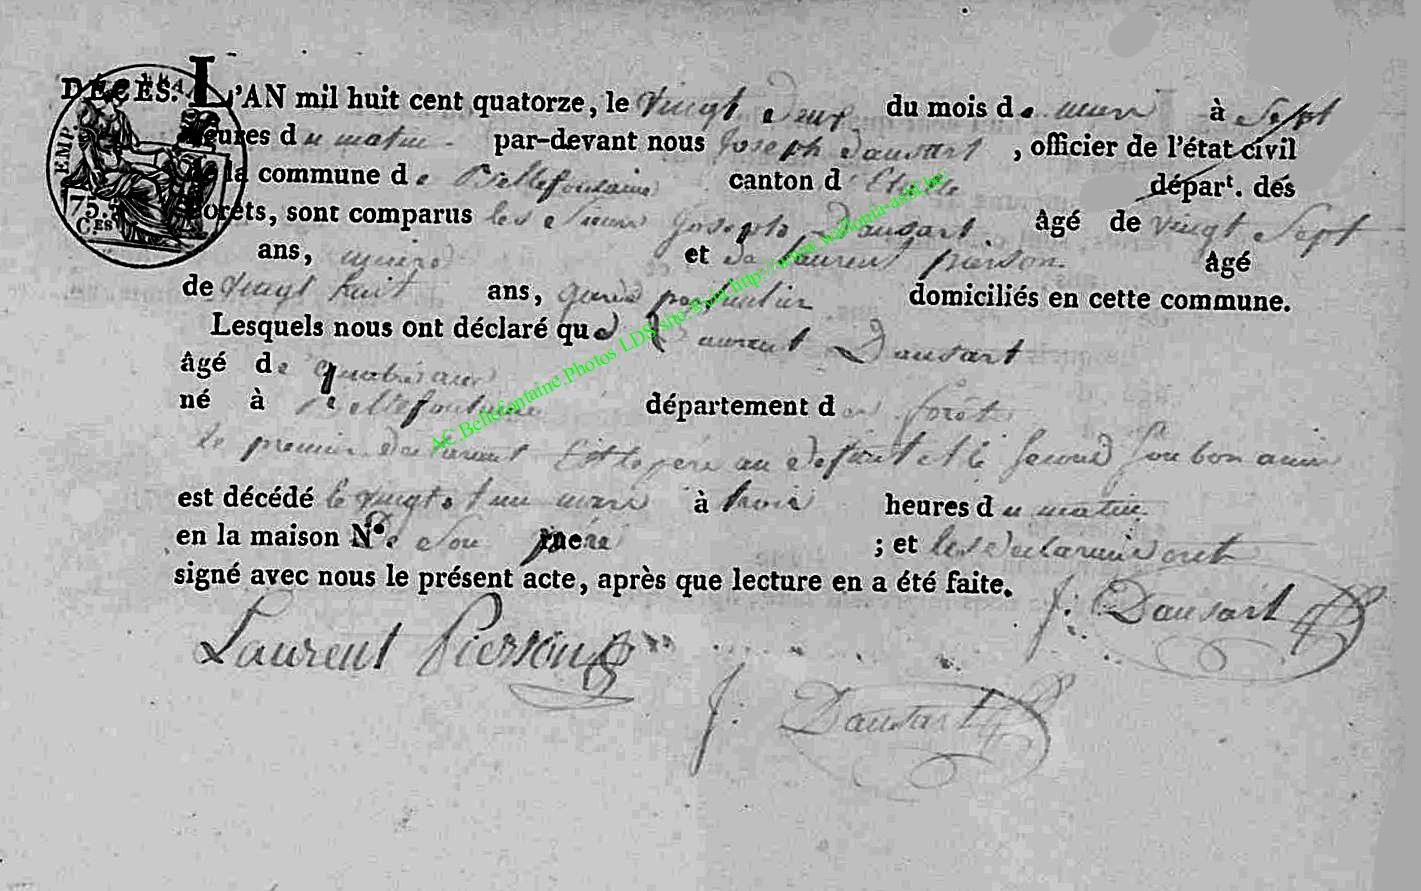 DÉCÈS. L'AN mil huit cent quatorze, le vingt deux du mois de mars à Sept
heures du matin par-devant nous Joseph Dausart, officier de l'état civil
de la commune de Bellefontaine canton d'Etalle départ. des
Forêts, sont comparus les Sieurs Joseph Dausart âgé de vingt Sept
ans, et de Laurent pierson. âgé
de vingt huit ans, garde domiciliés en cette commune.
Lesquels nous ont déclaré que Laurent Dausart
âgé de
né à Bellefontaine département des forets
le premier declarant Est le père au defunt et le Second Son bon amis
est décédé le vingt un mars à trois heures du matin
en la maison N°. de Son père ; et les declarans ont
signé avec nous le présent acte, après que lecture en a été faite.
J: Dausart
Laurent Pierson
J: Dausart
EMP.
75.
CES
AC.Bellefontaine.Photos LDS/site asvir.http://www.wallonia-asbl.be/